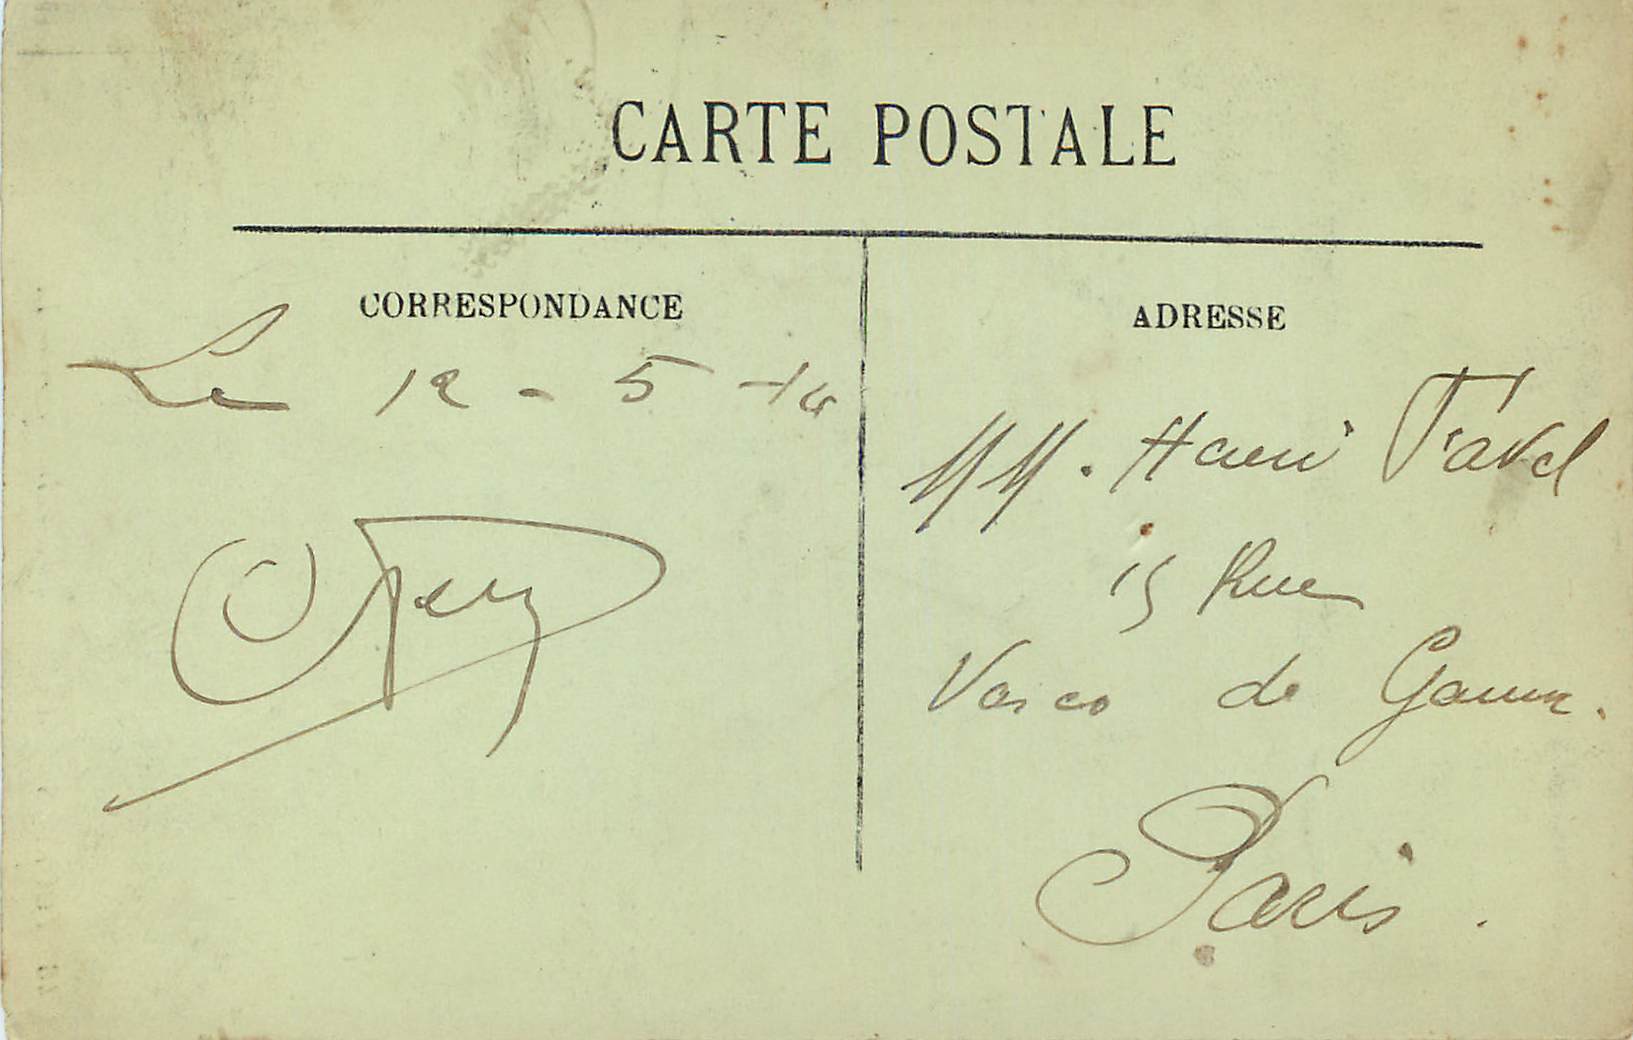 CARTE POSTALE
CORRESPONDANCE
Le 12 - 5 - 14
ADRESSE
MM. Henri Favel
15 Rue
Vasco de Gama.
Paris.